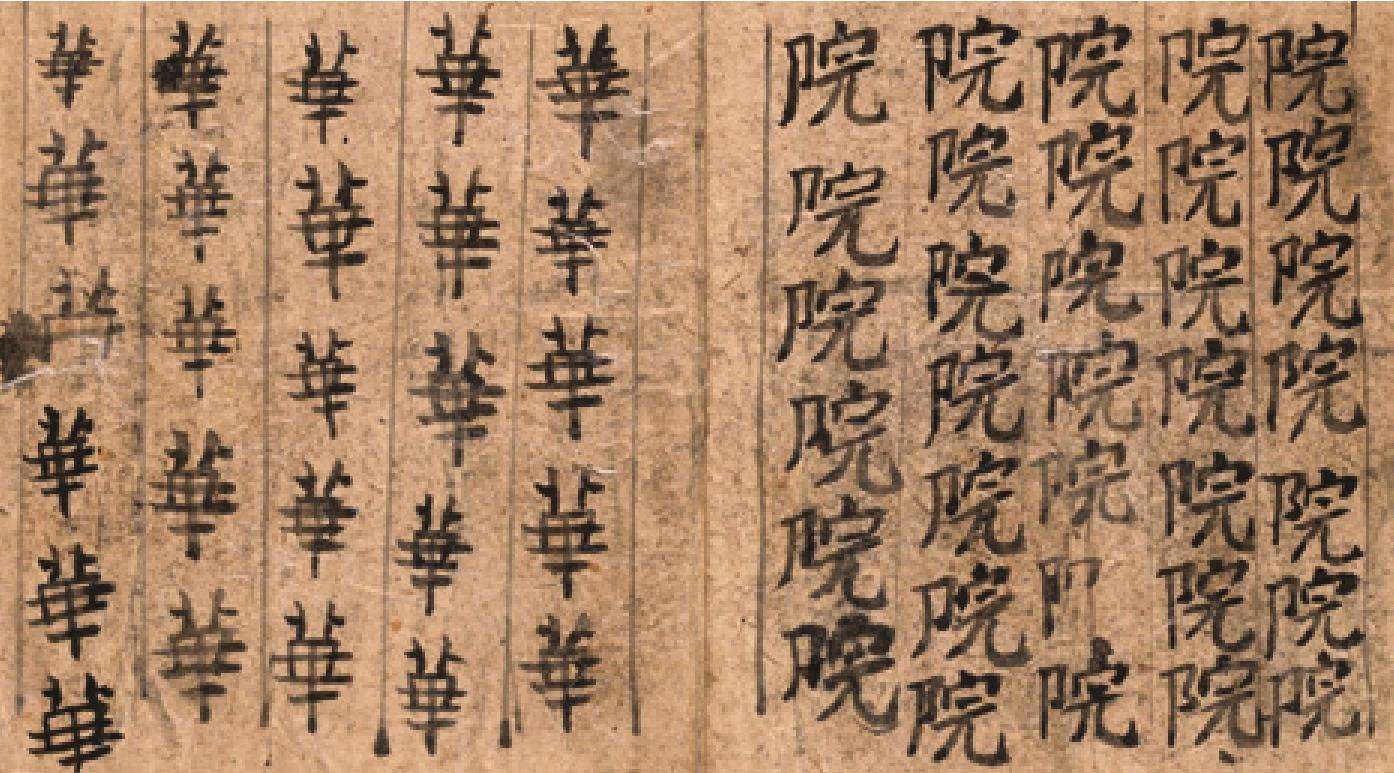 院院院院院院院
院院院院院院院
院院院院院院
院院院院院院院
院院院院院院
華華華華華
華華華華華
華華華華華
華華華華華
華華華華華